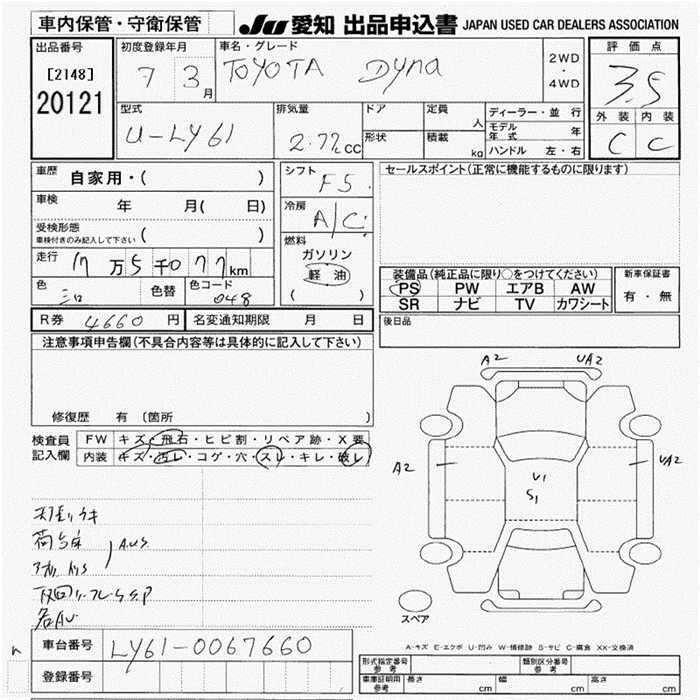 車内保管・守衛保管
JU 愛知 出品申込書 JAPAN USED CAR DEALERS ASSOCIATION
出品番号
[2148]
20121
初度登録年月
7 3月
車名・グレード
TOYOTA Dyna
2WD
・
4WD
評価点
3.5
外装 内装
C C
型式
U-LY61
排気量
2.77cc
ドア
形状
定員 人
積載 kg
ディーラー・並行
モデル年式 年
ハンドル 左・右
車歴
自家用・( )
車検
年 月( 日)
受検形態
車検付きのみ記入して下さい ( )
走行
17万5千077km
色
色替
色コード
048
シフト
F5
冷房
A/C
燃料
ガソリン
軽油
( )
セールスポイント(正常に機能するものに限ります)
装備品(純正品に限り○をつけてください)
PS PW エアB AW
SR ナビ TV カワシート
新車保証書
有・無
R券 4660円
名変通知期限 月 日
後日品
注意事項申告欄(不具合内容等は具体的に記入して下さい)
修復歴 有 〔箇所 〕
検査員
記入欄
FW キズ・飛石・ヒビ割・リペア跡・X要
内装 キズ・汚レ・コゲ・穴・スレ・キレ・破レ
A2 UA2
A2 UA2
U1
S1
スペア
A-キズ E-エクボ U-凹み W-補修跡 S-サビ C-腐食 XX-交換済
車台番号
LY61-0067660
登録番号
形式指定番号
参考
類別区分番号
参考
車庫証明用
参考
長さ cm
幅 cm
高さ cm